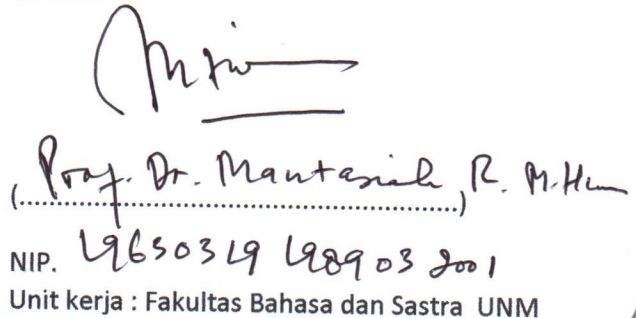 Prof. Dr. Mantasiah, R. M.Hum
(................................................)
NIP. 19630319 198903 2001
Unit kerja : Fakultas Bahasa dan Sastra UNM